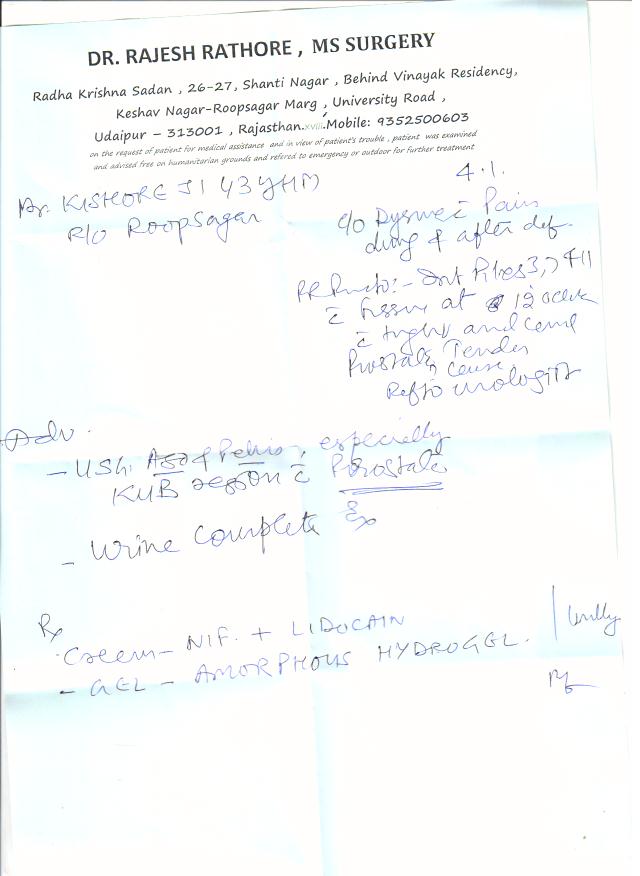 DR. RAJESH RATHORE , MS SURGERY
Radha Krishna Sadan , 26-27, Shanti Nagar , Behind Vinayak Residency,
Keshav Nagar-Roopsagar Marg , University Road ,
Udaipur – 313001 , Rajasthan.xviii.Mobile: 9352500603
on the request of patient for medical assistance and in view of patient's trouble , patient was examined
and advised free on humanitarian grounds and refered to emergency or outdoor for further treatment
4.1.
Mr. KISHORE JI 43YHM
R/O Roopsagar
c/o Pain
& after def.
Piles 3, 7 & 11
fissure at 12 oclock
and
Prostate Tender
cause
Ref to urologist
Adv.
- USG. Abd & Pelvis, especially
KUB region c̄ Prostate
- Urine Complete Ex
Rx
Cream- NIF. + LIDOCAIN
- GEL - AMORPHOUS HYDROGEL.
locally